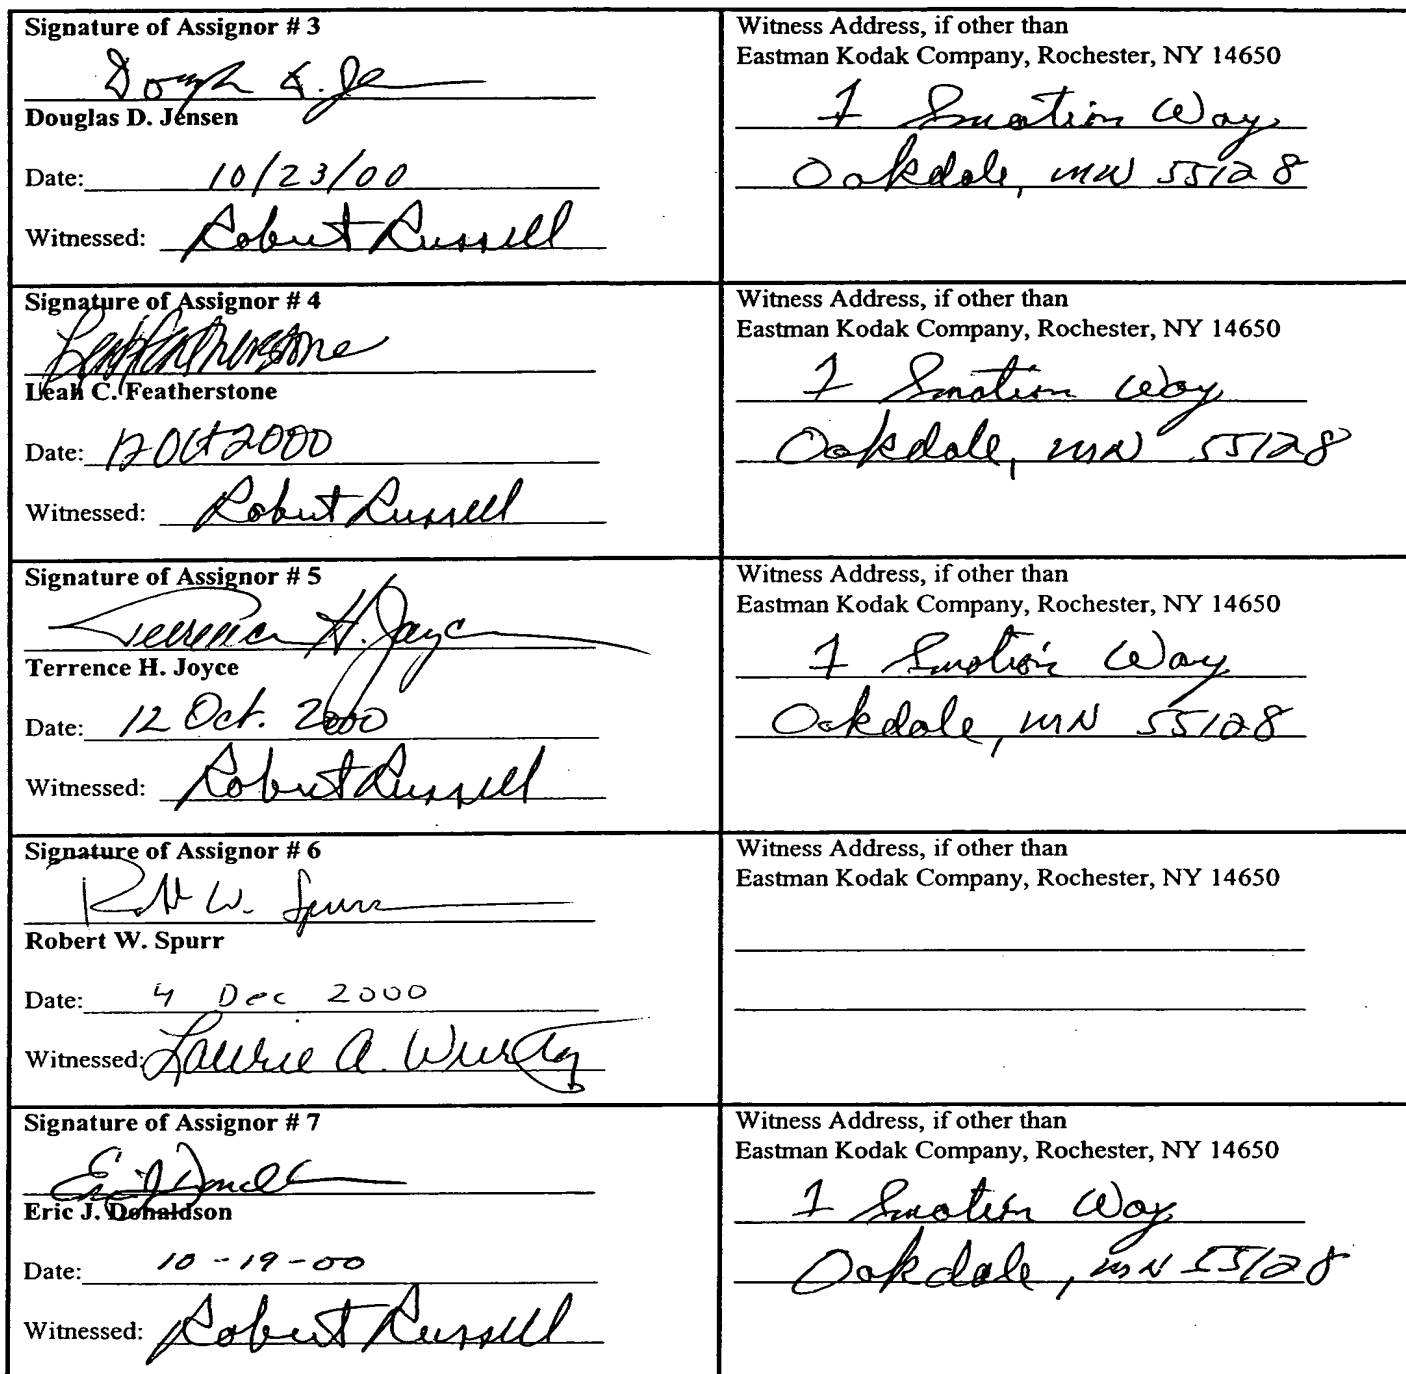 Signature of Assignor # 3
Douglas D. Jensen
Date: 10/23/00
Witnessed: Robert Russell
Witness Address, if other than
Eastman Kodak Company, Rochester, NY 14650
1 Imation Way
Oakdale, MN 55128
Signature of Assignor # 4
Leah C. Featherstone
Leah C. Featherstone
Date: 12 Oct 2000
Witnessed: Robert Russell
Witness Address, if other than
Eastman Kodak Company, Rochester, NY 14650
1 Imation Way
Oakdale, MN 55128
Signature of Assignor # 5
Terrence H. Joyce
Terrence H. Joyce
Date: 12 Oct. 2000
Witnessed: Robert Russell
Witness Address, if other than
Eastman Kodak Company, Rochester, NY 14650
1 Imation Way
Oakdale, MN 55128
Signature of Assignor # 6
Robt W. Spurr
Robert W. Spurr
Date: 4 Dec 2000
Witnessed: Laurie A.
Witness Address, if other than
Eastman Kodak Company, Rochester, NY 14650
Signature of Assignor # 7
Eric J. Donaldson
Date: 10-19-00
Witnessed: Robert Russell
Witness Address, if other than
Eastman Kodak Company, Rochester, NY 14650
1 Imation Way
Oakdale, MN 55128